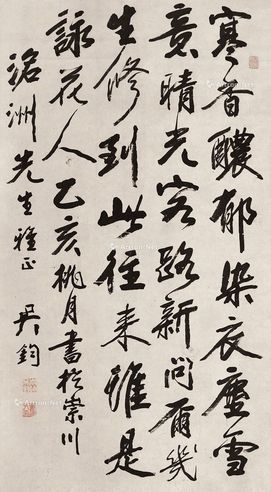 寒香醲郁染衣塵雪
意晴光客路新問爾幾
生修到此往来誰是
詠花人乙亥桃月書於崇川
洺洲先生雅正
吴鈞